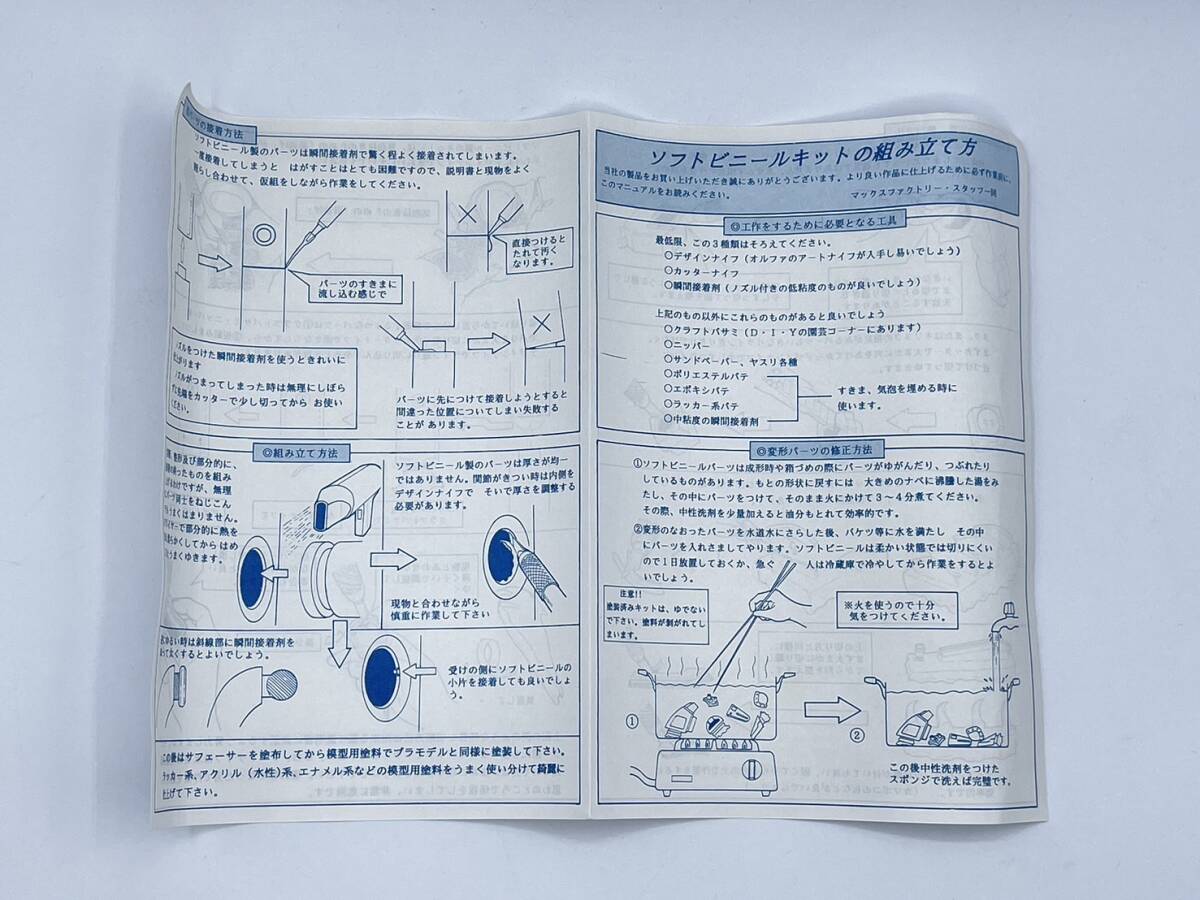 ソフトビニールキットの組み立て方
当社の製品をお買い上げいただき誠にありがとうございます。より良い作品に仕上げるために必ず作業前に、
このマニュアルをお読みください。
マックスファクトリー・スタッフ一同
◎工作をするために必要となる工具
最低限、この3種類はそろえてください。
○デザインナイフ(オルファのアートナイフが入手し易いでしょう)
○カッターナイフ
○瞬間接着剤(ノズル付きの低粘度のものが良いでしょう)
上記のもの以外にこれらのものがあると良いでしょう
○クラフトバサミ(D・I・Yの園芸コーナーにあります)
○ニッパー
○サンドペーパー、ヤスリ各種
○ポリエステルパテ
○エポキシパテ
○ラッカー系パテ
○中粘度の瞬間接着剤
すきま、気泡を埋める時に
使います。
◎変形パーツの修正方法
①ソフトビニールパーツは成形時や箱づめの際にパーツがゆがんだり、つぶれたり
しているものがあります。もとの形状に戻すには 大きめのナベに沸騰した湯をみ
たし、その中にパーツをつけて、そのまま火にかけて3～4分煮てください。
その際、中性洗剤を少量加えると油分もとれて効率的です。
②変形のなおったパーツを水道水にさらした後、バケツ等に水を満たし その中
にパーツを入れさましてやります。ソフトビニールは柔かい状態では切りにくい
ので1日放置しておくか、急ぐ 人は冷蔵庫で冷やしてから作業をするとよ
いでしょう。
注意!!
塗装済みキットは、ゆでない
で下さい。塗料が剝がれてし
まいます。
※火を使うので十分
気をつけてください。
①
②
この後中性洗剤をつけた
スポンジで洗えば完璧です。
の接着方法
ソフトビニール製のパーツは瞬間接着剤で驚く程よく接着されてしまいます。
一度接着してしまうと はがすことはとても困難ですので、説明書と現物をよく
照らし合わせて、仮組をしながら作業をしてください。
直接つけると
たれて汚く
なります。
パーツのすきまに
流し込む感じで
ノズルをつけた瞬間接着剤を使うときれいに
上がります
ノズルがつまってしまった時は無理にしぼら
ずに先端をカッターで少し切ってから お使い
ください。
パーツに先につけて接着しようとすると
間違った位置についてしまい失敗する
ことが あります。
◎組み立て方法
整形及び部分的に、
ったものを組み
るわけですが、無理
パーツ同士をねじこん
うまくはまりません。
ドライヤーで部分的に熱を
らかくしてから はめ
うまくゆきます。
ソフトビニール製のパーツは厚さが均一
ではありません。関節がきつい時は内側を
デザインナイフで そいで厚さを調整する
必要があります。
現物と合わせながら
慎重に作業して下さい
ゆるい時は斜線部に瞬間接着剤を
くするとよいでしょう。
受けの側にソフトビニールの
小片を接着しても良いでしょ
う。
この後はサフェーサーを塗布してから模型用塗料でプラモデルと同様に塗装して下さい。
ラッカー系、アクリル(水性)系、エナメル系などの模型用塗料をうまく使い分けて綺麗に
仕上げて下さい。